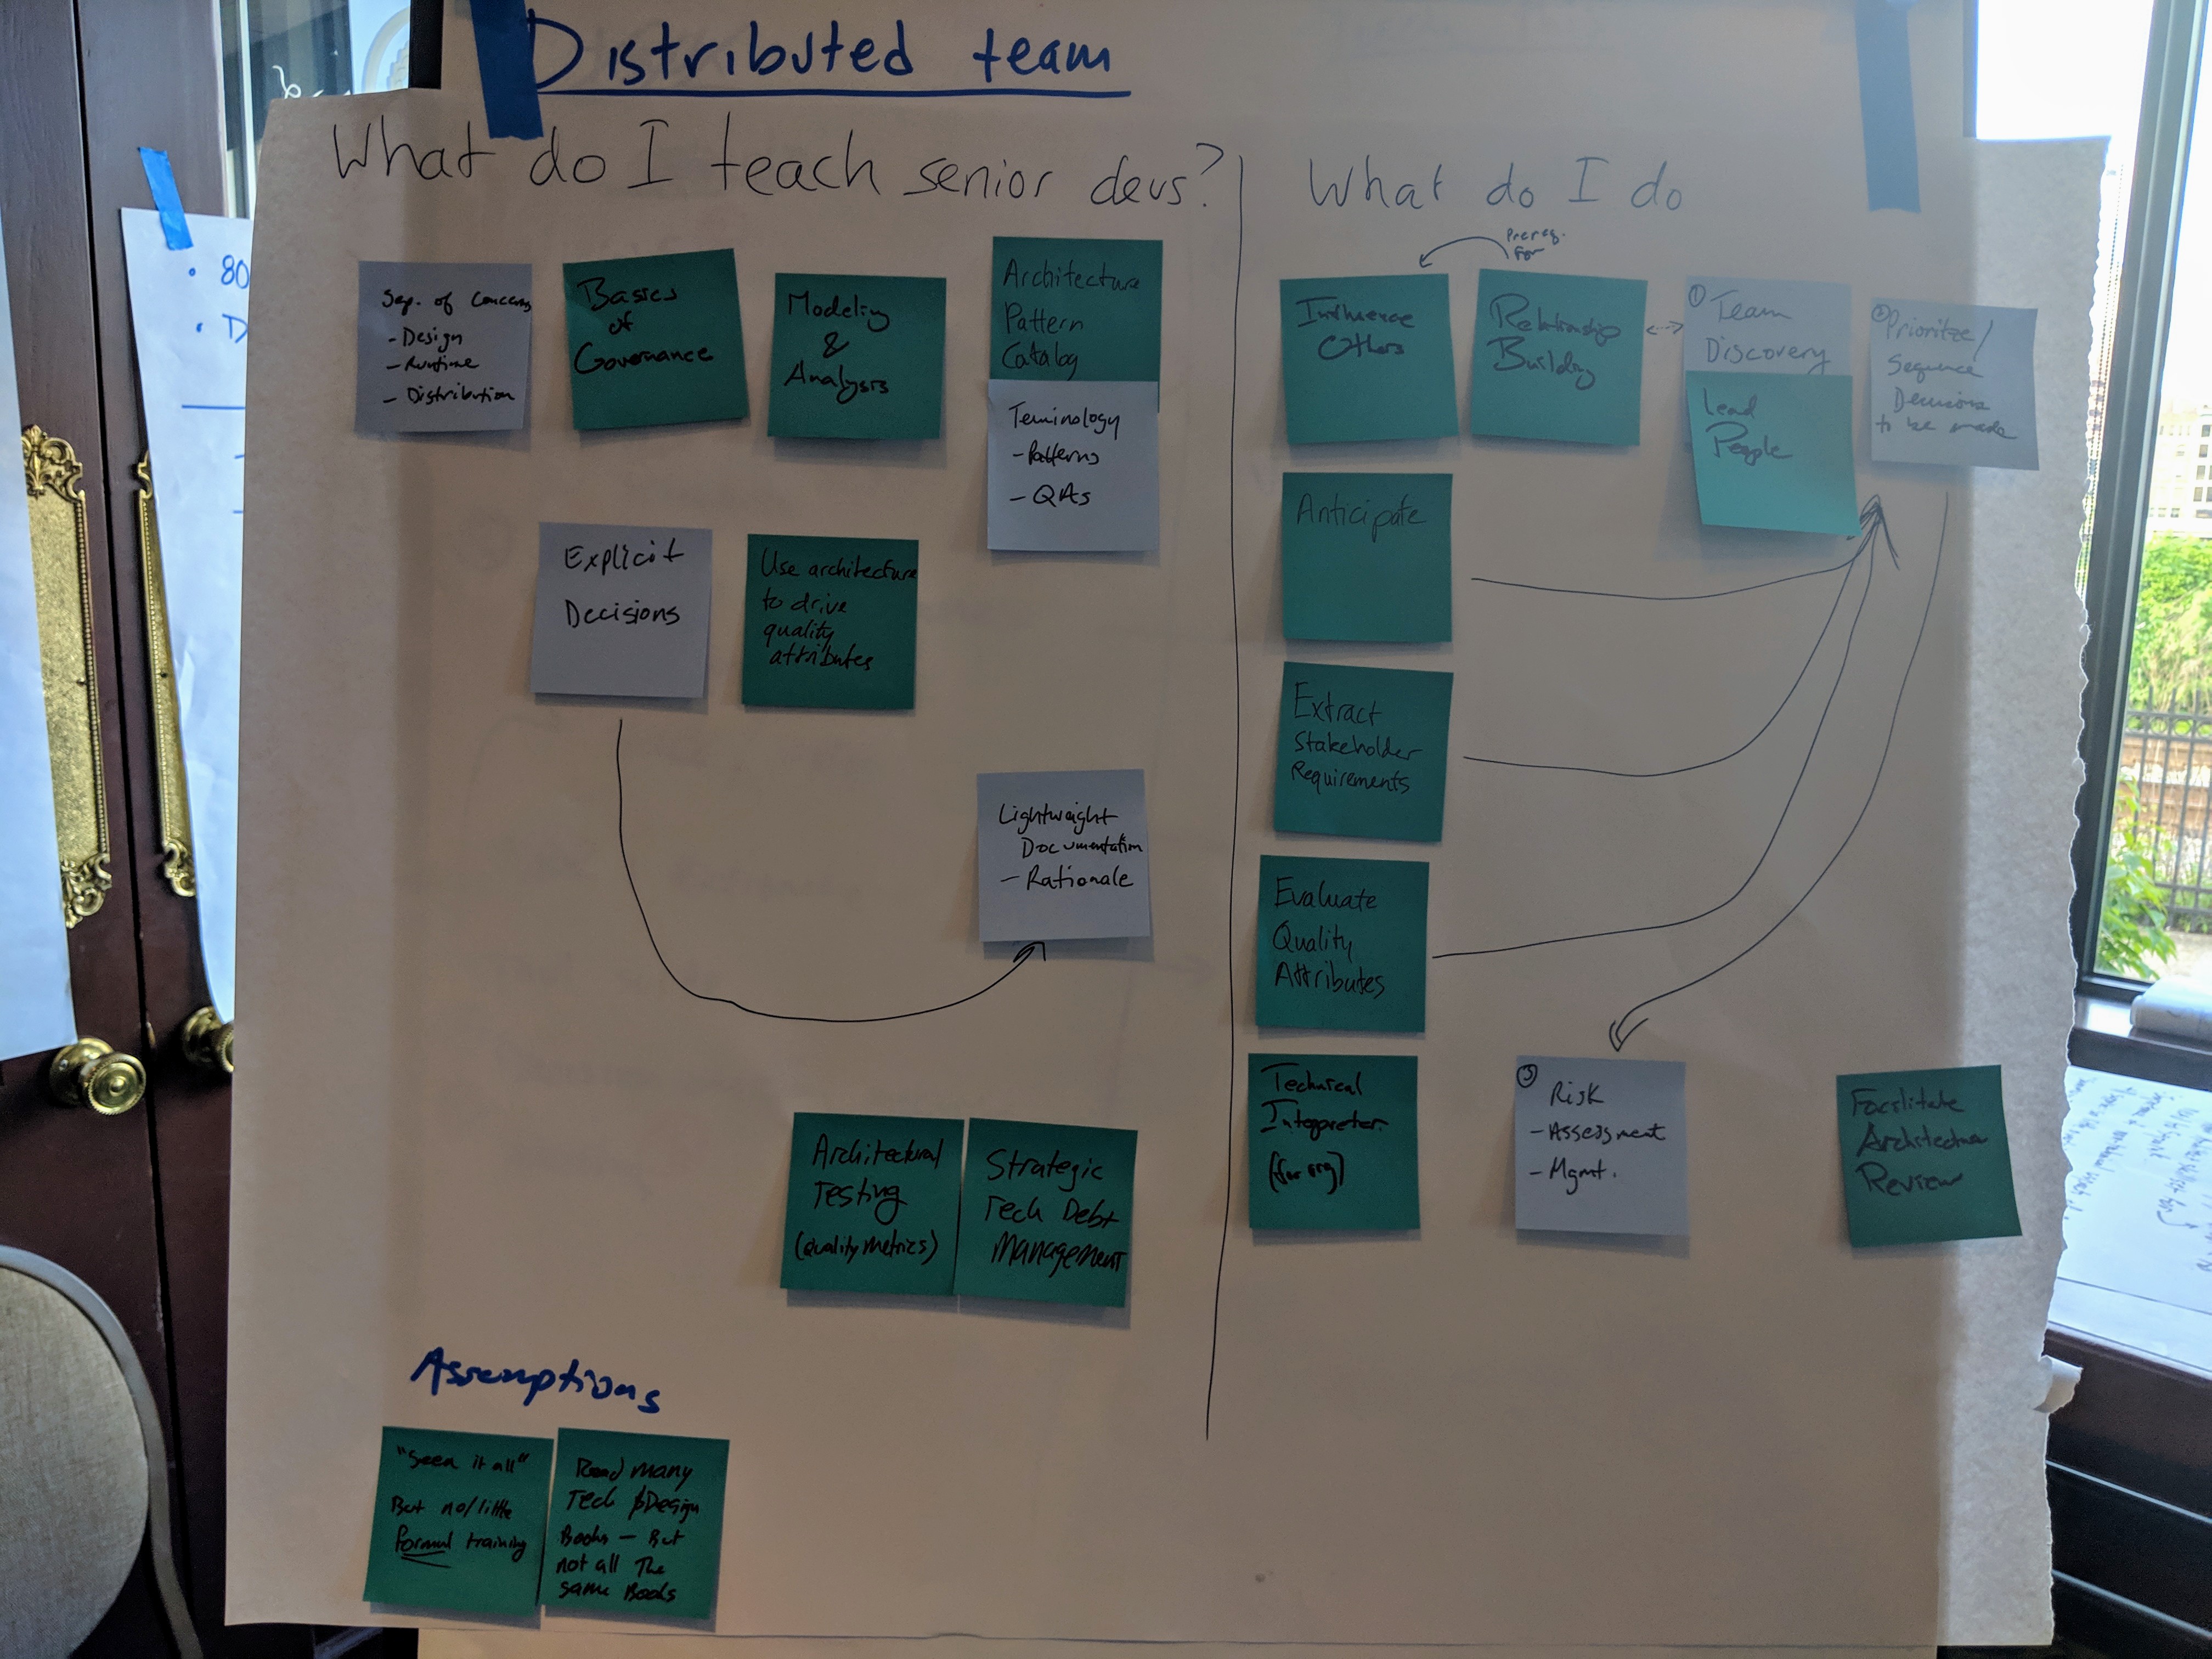 Distributed team
What do I teach senior devs?
Sep. of Concerns
- Design
- Runtime
- Distribution
Basics
of
Governance
Modeling
&
Analysis
Architecture
Pattern
Catalog
Teminology
- Patterns
- QAs
Explicit
Decisions
Use architecture
to drive
quality
attributes
Lightweight
Documentation
- Rationale
Architectural
Testing
(Quality Metrics)
Strategic
Tech Debt
Management
Assumptions
"Seen it all"
But no/little
formal training
Read many
Tech & Design
Books - But
not all The
same Books
What do I do
Prereq.
For
Influence
Others
Relationship
Building
① Team
Discovery
Lead
People
② Prioritize/
Sequence
Decisions
to be made
Anticipate
Extract
Stakeholder
Requirements
Evaluate
Quality
Attributes
Technical
Interpreter
(for org)
③ Risk
- Assessment
- Mgmt.
Facilitate
Architecture
Review
• 80
• D